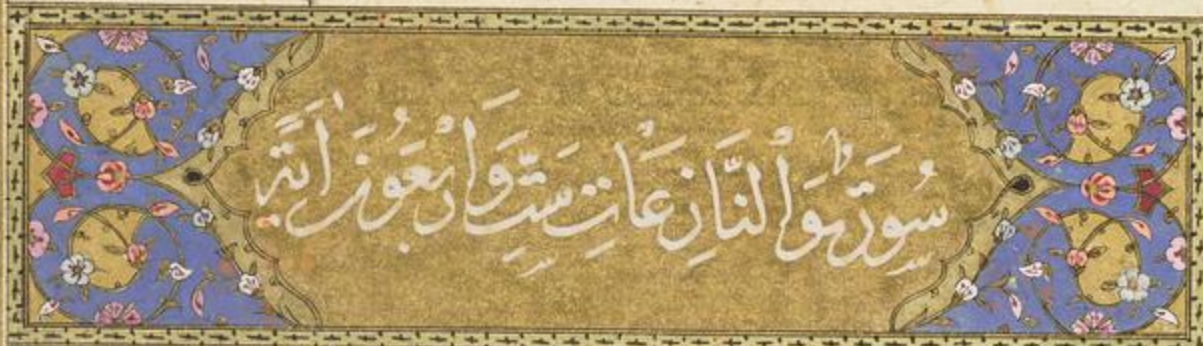 سُورَةُ وَالنَّازِعَاتِ سِتَّ وَاَرْبَعُونَ اٰيَةً